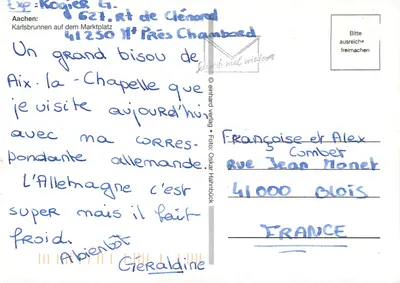 Exp: Rogier G.
627, Rt de Clénord
41250 Mt Près Chambord
Aachen:
Karlsbrunnen auf dem Marktplatz
Un grand bisou de
Aix-la-Chapelle que
je visite aujourd'hui
avec ma corres-
pondante allemande.
L'Allemagne c'est
super mais il fait
froid.
Abientôt
Géraldine
Schreib mal wieder
© einhard verlag • Foto: Oskar Hambück
Bitte
ausreichend
freimachen
Françoise et Alex
Combet
Rue Jean Monet
41000 Blois
FRANCE